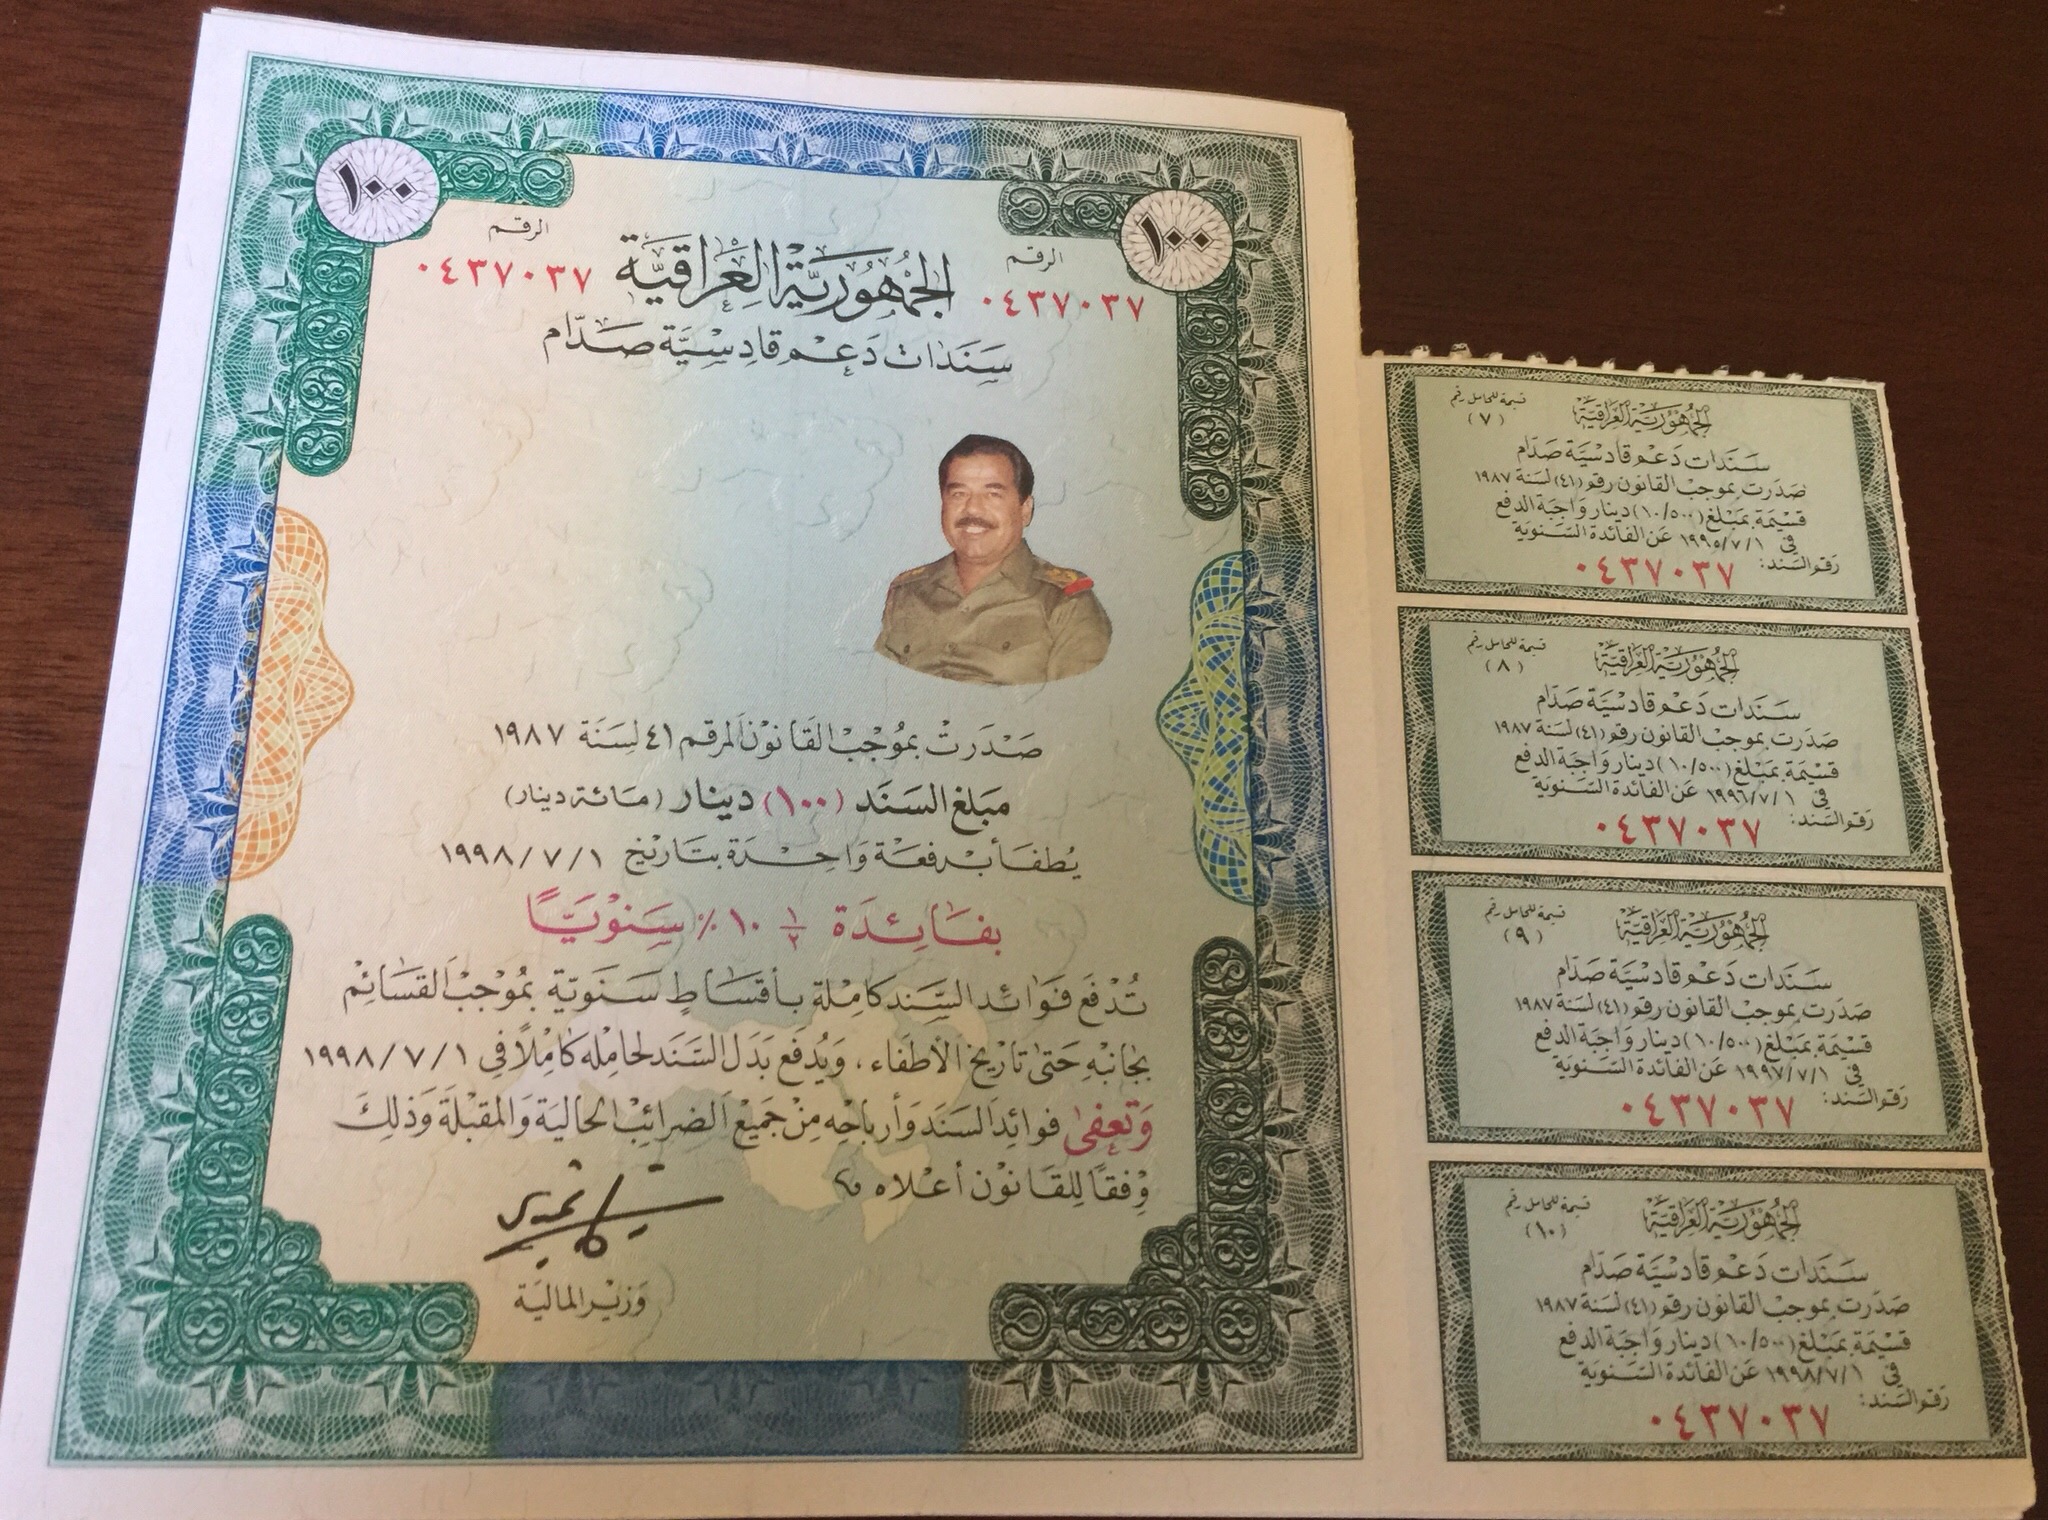 ١٠٠
١٠٠
الرقم
الرقم
٠٤٣٧٠٣٧
الجُمْهُورِيَّةُ العِرَاقِيَّة
٠٤٣٧٠٣٧
سَنَدَات دَعْم قَادِسْيَّة صَدَّام
صَدَرَتْ بمُوْجَبْ القَانوُنْ المرقم ٤١ لسَنَة ١٩٨٧
مَبلغ السَنَد (١٠٠) دينار (مَائة دينار)
يُطفَأ بدفعَة وَاحِدَة بتَاريْخ ١٩٩٨/٧/١
بفَائِدَة ١/٢ ١٠ ٪ سَنوِيَّاً
تُدْفَع فَوَائد السَّنَد كامِلة بأقسَاطٍ سَنَويّة بمُوْجَبْ القسَائِمْ
بجَانبْهِ حَتىٰ تاريْخ الأطفَاء ، وَيُدفَع بَدَل السَّنَد لحَامِله كاملاً في ١٩٩٨/٧/١
وَتعفىٰ فوائِد السَنَد وَأرباحِه مِنْ جَميْع الضرائبْ الحاليَة وَالمقبلَة وَذلِكَ
وِفقَاً لِلقَانوُنْ أعْلاه
وَزيْر الماليَة
قسيمة للحَامل رقم
(٧)
الجُمهُورِيَّة العِرَاقِيَّة
سَنَدَات دَعْم قادسْيَّة صَدّام
صَدَرَت بموجَب القانون رقم (٤١) لسَنة ١٩٨٧
قسْيمَة بمَبْلغ (١٠/٥٠٠) دينار وَاجبَة الدفع
في ١٩٩٥/٧/١ عَن الفائدة السَّنَوية
رَقم السَند: ٠٤٣٧٠٣٧
قسيمة للحَامل رقم
(٨)
الجُمهُورِيَّة العِرَاقِيَّة
سَنَدَات دَعْم قادسْيَّة صَدّام
صَدَرَت بموجَب القانون رقم (٤١) لسَنة ١٩٨٧
قسْيمَة بمَبْلغ (١٠/٥٠٠) دينار وَاجبَة الدفع
في ١٩٩٦/٧/١ عَن الفائدة السَّنَوية
رَقم السَند: ٠٤٣٧٠٣٧
قسيمة للحَامل رقم
(٩)
الجُمهُورِيَّة العِرَاقِيَّة
سَنَدَات دَعْم قادسْيَّة صَدّام
صَدَرَت بموجَب القانون رقم (٤١) لسَنة ١٩٨٧
قسْيمَة بمَبْلغ (١٠/٥٠٠) دينار وَاجبَة الدفع
في ١٩٩٧/٧/١ عَن الفائدة السَّنَوية
رَقم السَند: ٠٤٣٧٠٣٧
قسيمة للحَامل رقم
(١٠)
الجُمهُورِيَّة العِرَاقِيَّة
سَنَدَات دَعْم قادسْيَّة صَدّام
صَدَرَت بموجَب القانون رقم (٤١) لسَنة ١٩٨٧
قسْيمَة بمَبْلغ (١٠/٥٠٠) دينار وَاجبَة الدفع
في ١٩٩٨/٧/١ عَن الفائدة السَّنَوية
رَقم السَند: ٠٤٣٧٠٣٧